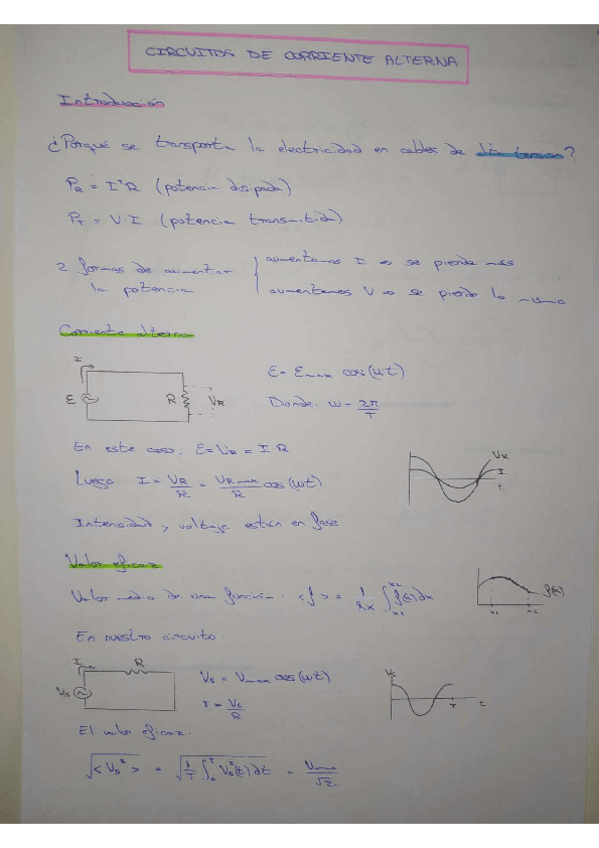 CIRCUITOS DE CORRIENTE ALTERNA
Introducción
¿Porqué se transporta la electricidad en cables de alta tensión?
P_R = I²R (potencia disipada)
P_T = V·I (potencia transmitida)
2 formas de aumentar la potencia
aumentamos I ⇒ se pierde más
aumentamos V ⇒ se pierde lo mismo
Corriente alterna
I
ε
R
V_R
ε = ε_max cos(ωt)
Donde ω = 2π/T
En este caso: ε = V_R = I·R
Luego I = V_R/R = V_Rmax/R cos(ωt)
V_R
I
t
Intensidad y voltaje están en fase
Valor eficaz
Valor medio de una función: <f> = 1/Δx ∫_x1^x2 f(x)dx
f(x)
x1
x2
En nuestro circuito:
I
R
V_S
V_S = V_max cos(ωt)
I = V_S/R
V_S
T
t
El valor eficaz:
√<V_S²> = √(1/T ∫_0^T V_S²(t)dt) = V_max/√2